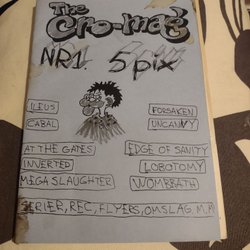 The
Cro-mag
NR1 5 pix
ILEUS FORSAKEN
CABAL UNCANNY
AT THE GATES EDGE OF SANITY
INVERTED LOBOTOMY
MEGA SLAUGHTER WOMBBATH
SERIER, REC, FLYERS, OMSLAG, M.M